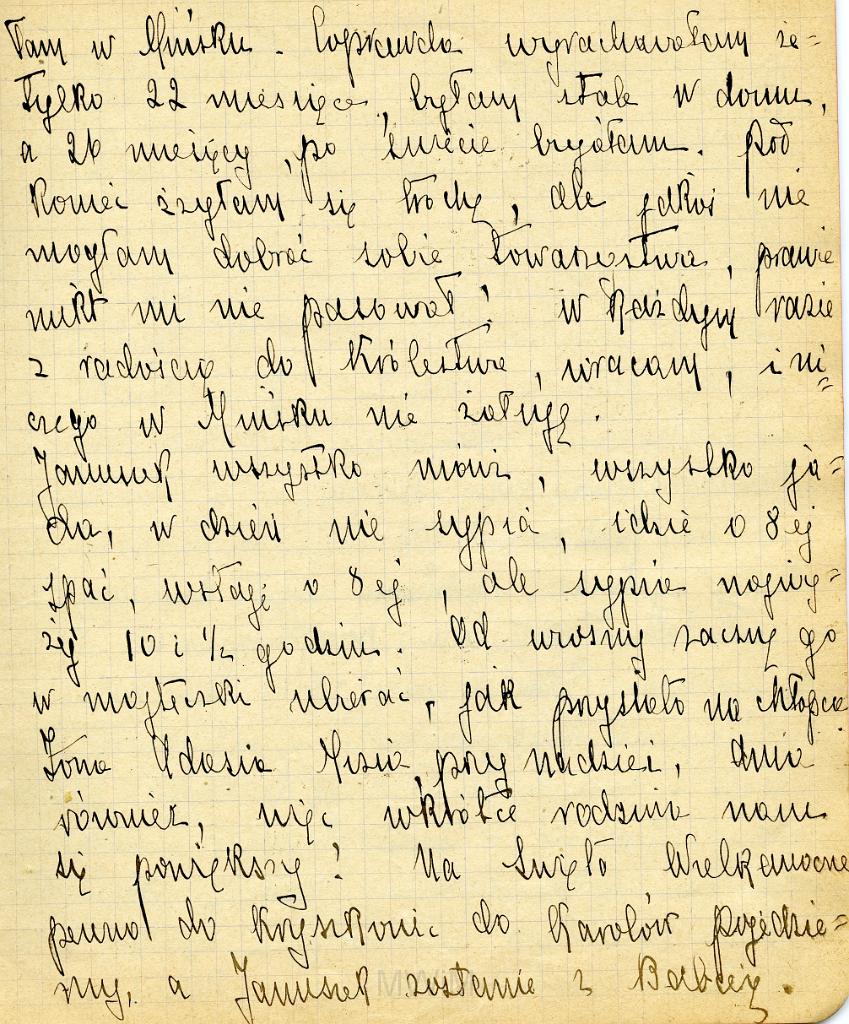 Tam w Mińsku. Coprawda wyrachowałam że=
tylko 22 miesięce, byłam stale w domu,
a 26 miesięcy, po świecie bryłam. Pod
koniec zżyłam się trochę, ale jakoś nie
mogłam dobrać sobie towarzystwa, prawie
nikt mi nie pasował! W każdym razie
z radością do Królestwa, wracam, i ni=
czego w Mińsku nie żałuję.
Januszek wszystko mówi, wszystko ja=
da, w dzień nie sypia, idzie o 8ej
spać, wstaje o 8ej, ale sypia najwy=
żej 10 i ½ godzin. Od wiosny zacznę go
w majteczki ubierać, jak przystało na chłopca
Żona Adasia Misia, przy nadziei,
również, więc wkrótce rodzina nam
się powiększy! Na Święto Wielkanocne
pewno do do Karolów pojedzie=
my, a Januszek zostanie z Babcią.
MWM